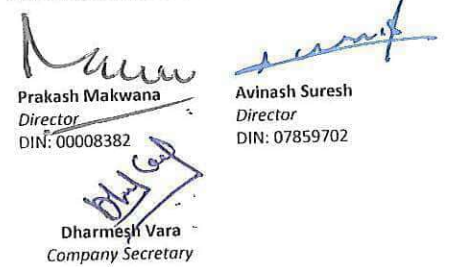 Prakash Makwana
Director
DIN: 00008382
Avinash Suresh
Director
DIN: 07859702
Dharmesh Vara
Company Secretary